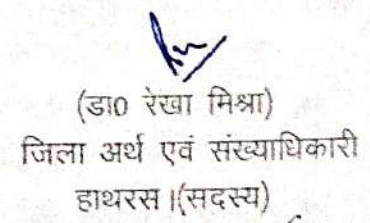 (डा0 रेखा मिश्रा)
जिला अर्थ एवं संख्याधिकारी
हाथरस।(सदस्य)